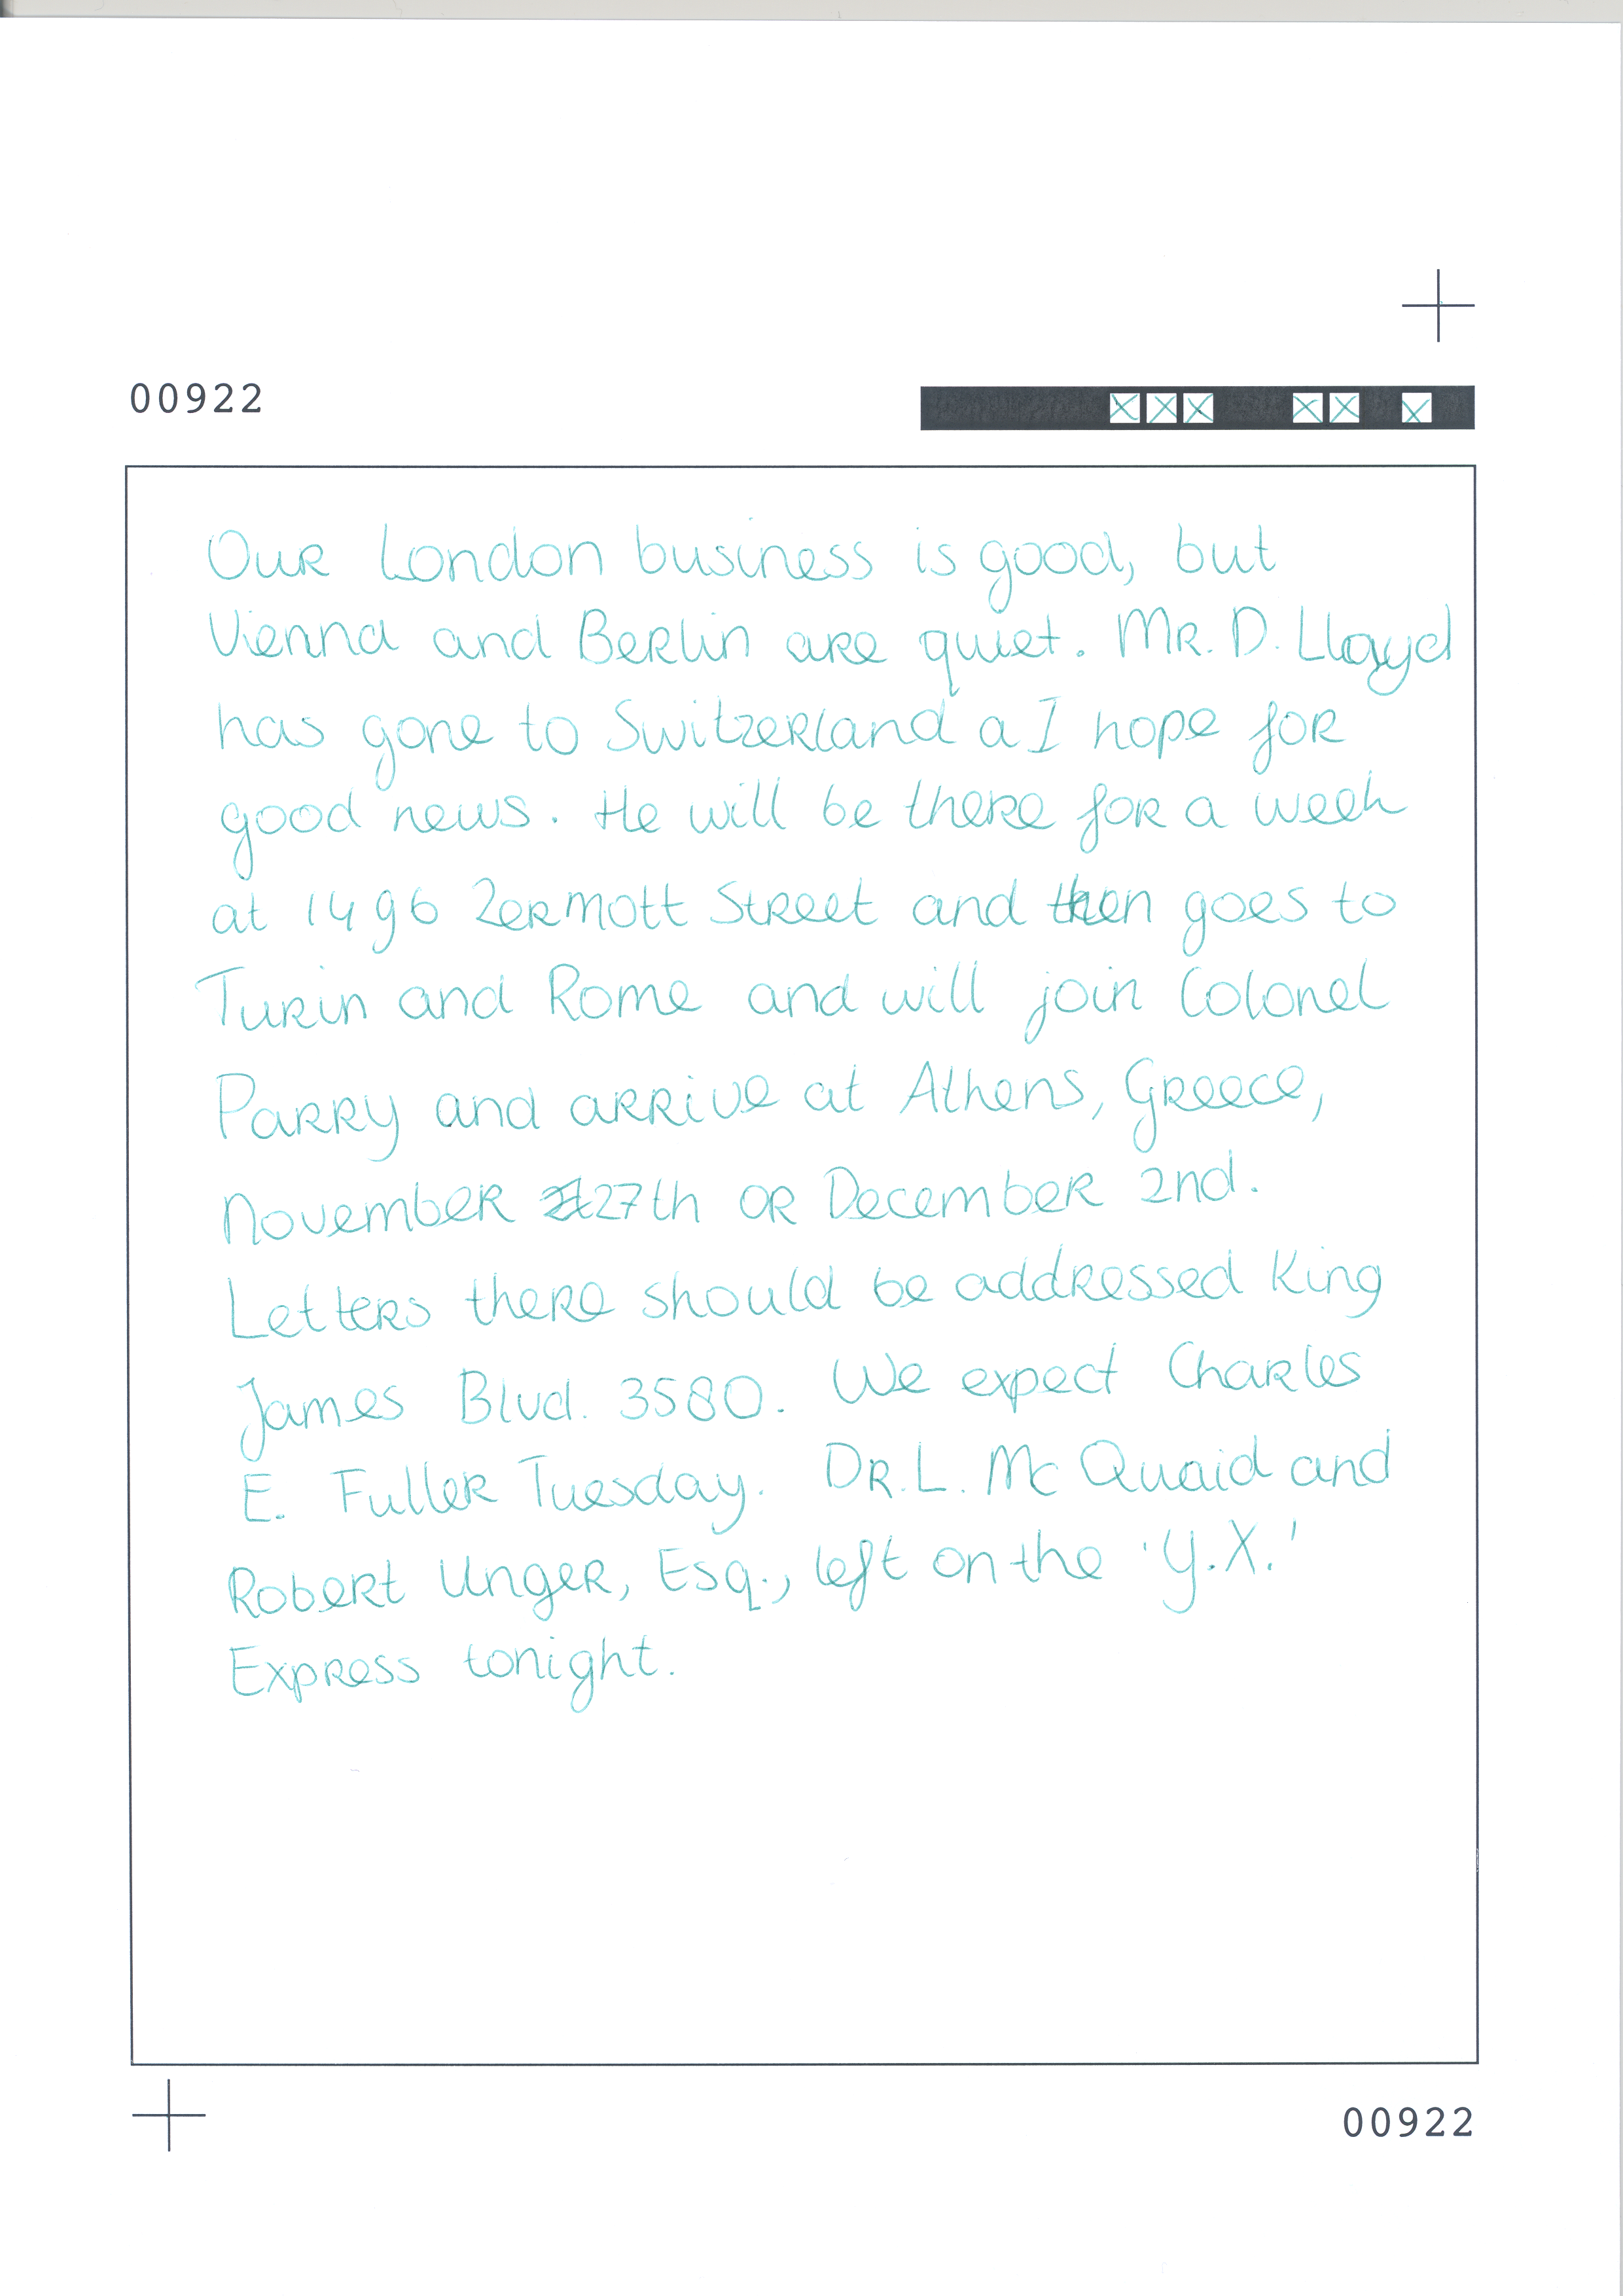 00922
Our London business is good, but
Vienna and Berlin are quiet. Mr. D. Lloyd
has gone to Switzerland a I hope for
good news. He will be there for a week
at 1496 Zermott Street and then goes to
Turin and Rome and will join Colonel
Parry and arrive at Athens, Greece,
November 27th or December 2nd.
Letters there should be addressed King
James Blvd. 3580. We expect Charles
E. Fuller Tuesday. Dr. L. Mc Quaid and
Robert Unger, Esq., left on the 'Y.X.'
Express tonight.
00922